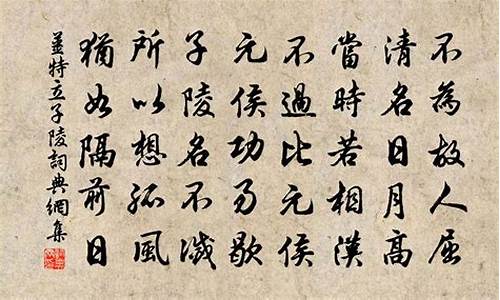 不為故人屈
清名日月高
當時若相漢
不過比元侯
元侯功易歇
子陵名不滅
所以想孤風
猶如隔前日
薑特立子陵詞典網集